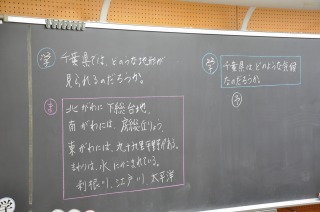 学 千葉県では、どのような地形が
見られるのだろうか。
ま 北がわに下総台地、
南がわには、房総丘りょう、
東がわには、九十九里平野がある。
まわりは、水にかこまれている。
利根川、江戸川 太平洋
学 千葉県は、どのような気候
なのだろうか。
予
学